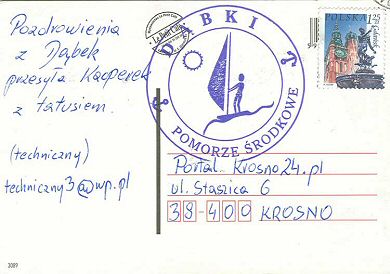 Pozdrowienia
z Dąbek
przesyła Kacperek
z tatusiem.
(techniczny)
techniczny3@wp.pl
DĄBKI
POMORZE ŚRODKOWE
POLSKA 1,25
Portal Krosno24.pl
ul. Staszica 6
38-400 KROSNO
3089